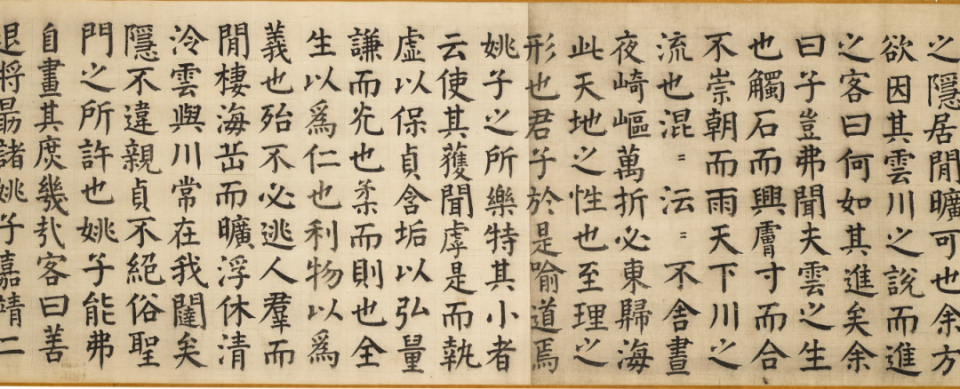 之隱居閒曠可也余方
欲因其雲川之說而進
之客曰何如其進矣余
曰子豈弗聞夫雲之生
也觸石而興膚寸而合
不崇朝而雨天下川之
流也混〻沄〻不舍晝
夜崎嶇萬折必東歸海
此天地之性也至理之
形也君子於是喻道焉
姚子之所樂特其小者
云使其獲聞虖是而執
虛以保貞含垢以弘量
謙而光也柔而則也全
生以爲仁也利物以爲
義也殆不必逃人羣而
閒棲海岳而曠浮休清
泠雲與川常在我闥矣
隱不違親貞不絕俗聖
門之所許也姚子能弗
自畫其庶幾哉客曰善
退將勗諸姚子嘉靖二